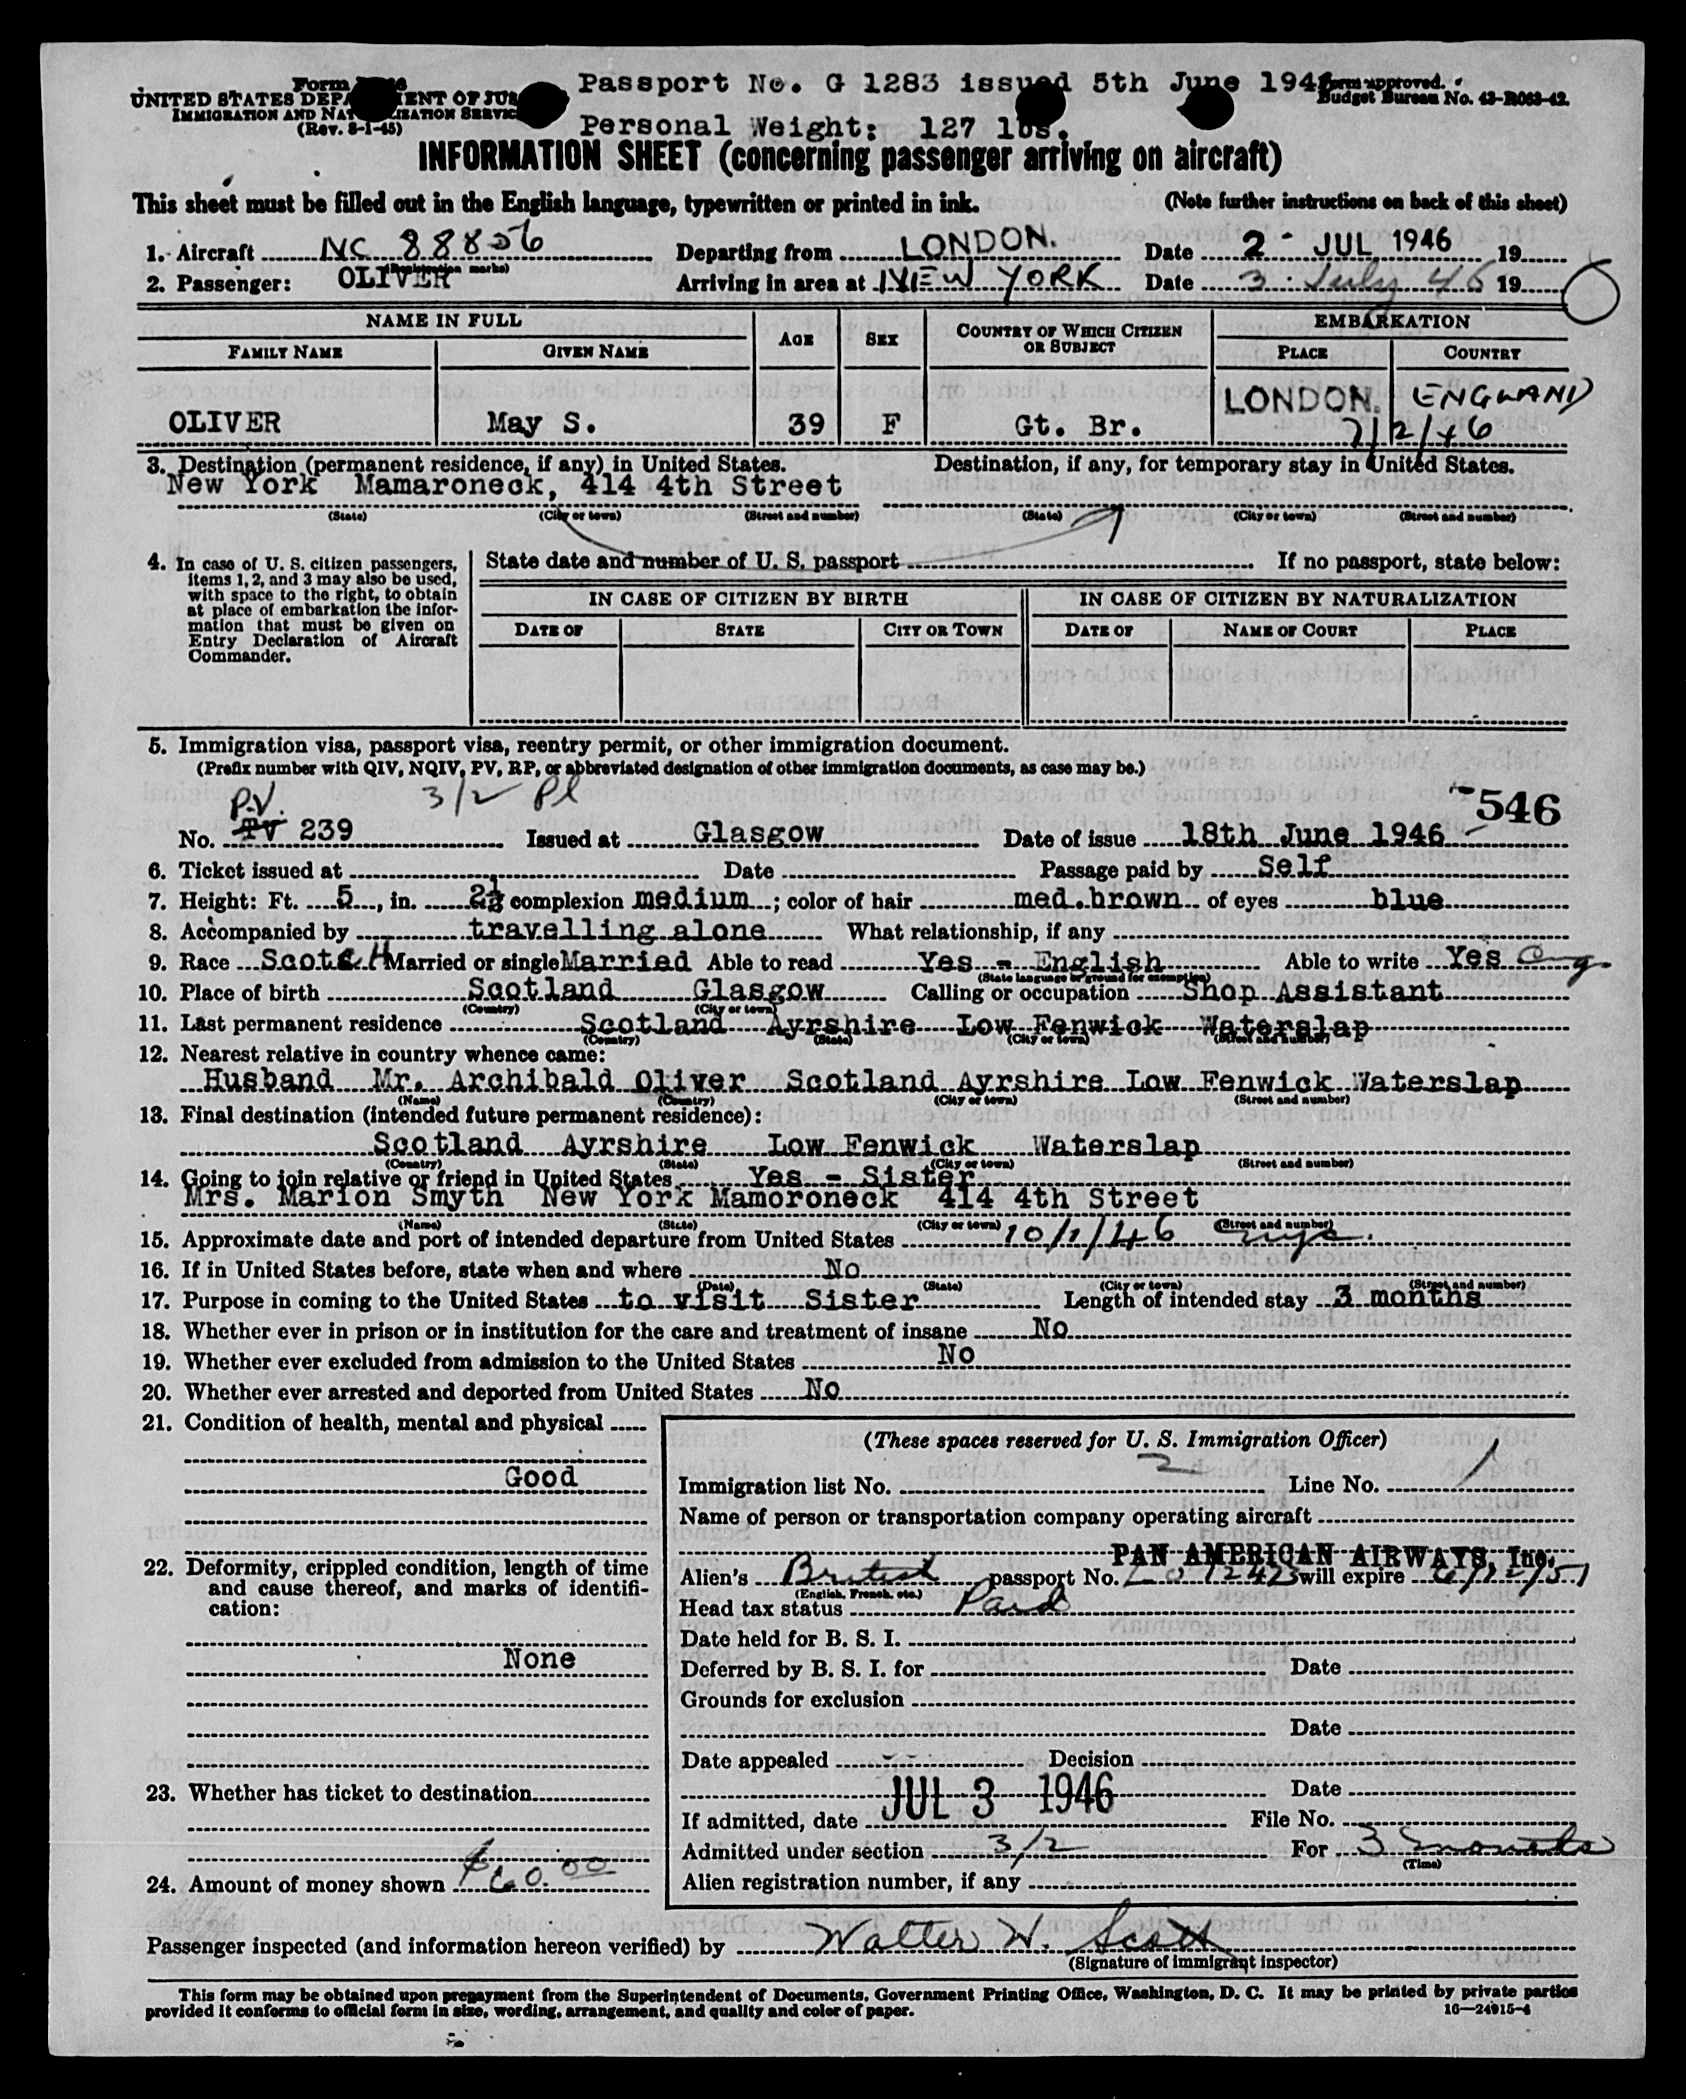 Form
Passport No. G 1283 issued 5th June 194
Form approved.
UNITED STATES DEPARTMENT OF JUSTICE
Budget Bureau No. 43-R063-42.
IMMIGRATION AND NATURALIZATION SERVICE
(Rev. 8-1-45)
Personal Weight: 127 lbs.
INFORMATION SHEET (concerning passenger arriving on aircraft)
This sheet must be filled out in the English language, typewritten or printed in ink. (Note further instructions on back of this sheet)
1. Aircraft NC 88856 Departing from LONDON. Date 2 - JUL 1946 19
(Registration marks)
2. Passenger: OLIVER Arriving in area at NEW YORK Date 3 July 46 19
NAME IN FULL AGE SEX COUNTRY OF WHICH CITIZEN OR SUBJECT EMBARKATION
FAMILY NAME GIVEN NAME PLACE COUNTRY
OLIVER May S. 39 F Gt. Br. LONDON. ENGLAND
7/2/46
3. Destination (permanent residence, if any) in United States. Destination, if any, for temporary stay in United States.
New York Mamaroneck, 414 4th Street
(State) (City or town) (Street and number) (State) (City or town) (Street and number)
4. In case of U. S. citizen passengers, items 1, 2, and 3 may also be used, with space to the right, to obtain at place of embarkation the information that must be given on Entry Declaration of Aircraft Commander.
State date and number of U. S. passport If no passport, state below:
IN CASE OF CITIZEN BY BIRTH IN CASE OF CITIZEN BY NATURALIZATION
DATE OF STATE CITY OR TOWN DATE OF NAME OF COURT PLACE
5. Immigration visa, passport visa, reentry permit, or other immigration document.
(Prefix number with QIV, NQIV, PV, RP, or abbreviated designation of other immigration documents, as case may be.)
P.V. 3/2 Pl 546
No. TV 239 Issued at Glasgow Date of issue 18th June 1946
6. Ticket issued at Date Passage paid by Self
7. Height: Ft. 5, in. 2½ complexion medium; color of hair med.brown of eyes blue
8. Accompanied by travelling alone What relationship, if any
9. Race ScotcH Married or single Married Able to read Yes - English Able to write Yes Eng.
(State language or ground for exemption)
10. Place of birth Scotland Glasgow Calling or occupation Shop Assistant
(Country) (City or town)
11. Last permanent residence Scotland Ayrshire Low Fenwick Waterslap
(Country) (State) (City or town) (Street and number)
12. Nearest relative in country whence came:
Husband Mr. Archibald Oliver Scotland Ayrshire Low Fenwick Waterslap
(Name) (Country) (City or town) (Street and number)
13. Final destination (intended future permanent residence):
Scotland Ayrshire Low Fenwick Waterslap
(Country) (State) (City or town) (Street and number)
14. Going to join relative or friend in United States Yes - Sister
Mrs. Marion Smyth New York Mamoroneck 414 4th Street
(Name) (State) (City or town) (Street and number)
15. Approximate date and port of intended departure from United States 10/1/46
16. If in United States before, state when and where No
(Date) (State) (City or town) (Street and number)
17. Purpose in coming to the United States to visit Sister Length of intended stay 3 months
18. Whether ever in prison or in institution for the care and treatment of insane No
19. Whether ever excluded from admission to the United States No
20. Whether ever arrested and deported from United States No
21. Condition of health, mental and physical
Good
22. Deformity, crippled condition, length of time and cause thereof, and marks of identification:
None
23. Whether has ticket to destination
24. Amount of money shown $60.00
(These spaces reserved for U. S. Immigration Officer)
Immigration list No. 2 Line No. 1
Name of person or transportation company operating aircraft
PAN AMERICAN AIRWAYS, Inc.
Alien's British passport No. will expire
(English, French, etc.)
Head tax status Paid
Date held for B. S. I.
Deferred by B. S. I. for Date
Grounds for exclusion
Date
Date appealed Decision
Date
If admitted, date JUL 3 1946 File No.
Admitted under section 3/2 For 3 months
(Time)
Alien registration number, if any
Passenger inspected (and information hereon verified) by Walter W. Scott
(Signature of immigrant inspector)
This form may be obtained upon prepayment from the Superintendent of Documents, Government Printing Office, Washington, D. C. It may be printed by private parties
provided it conforms to official form in size, wording, arrangement, and quality and color of paper. 16—24915-4